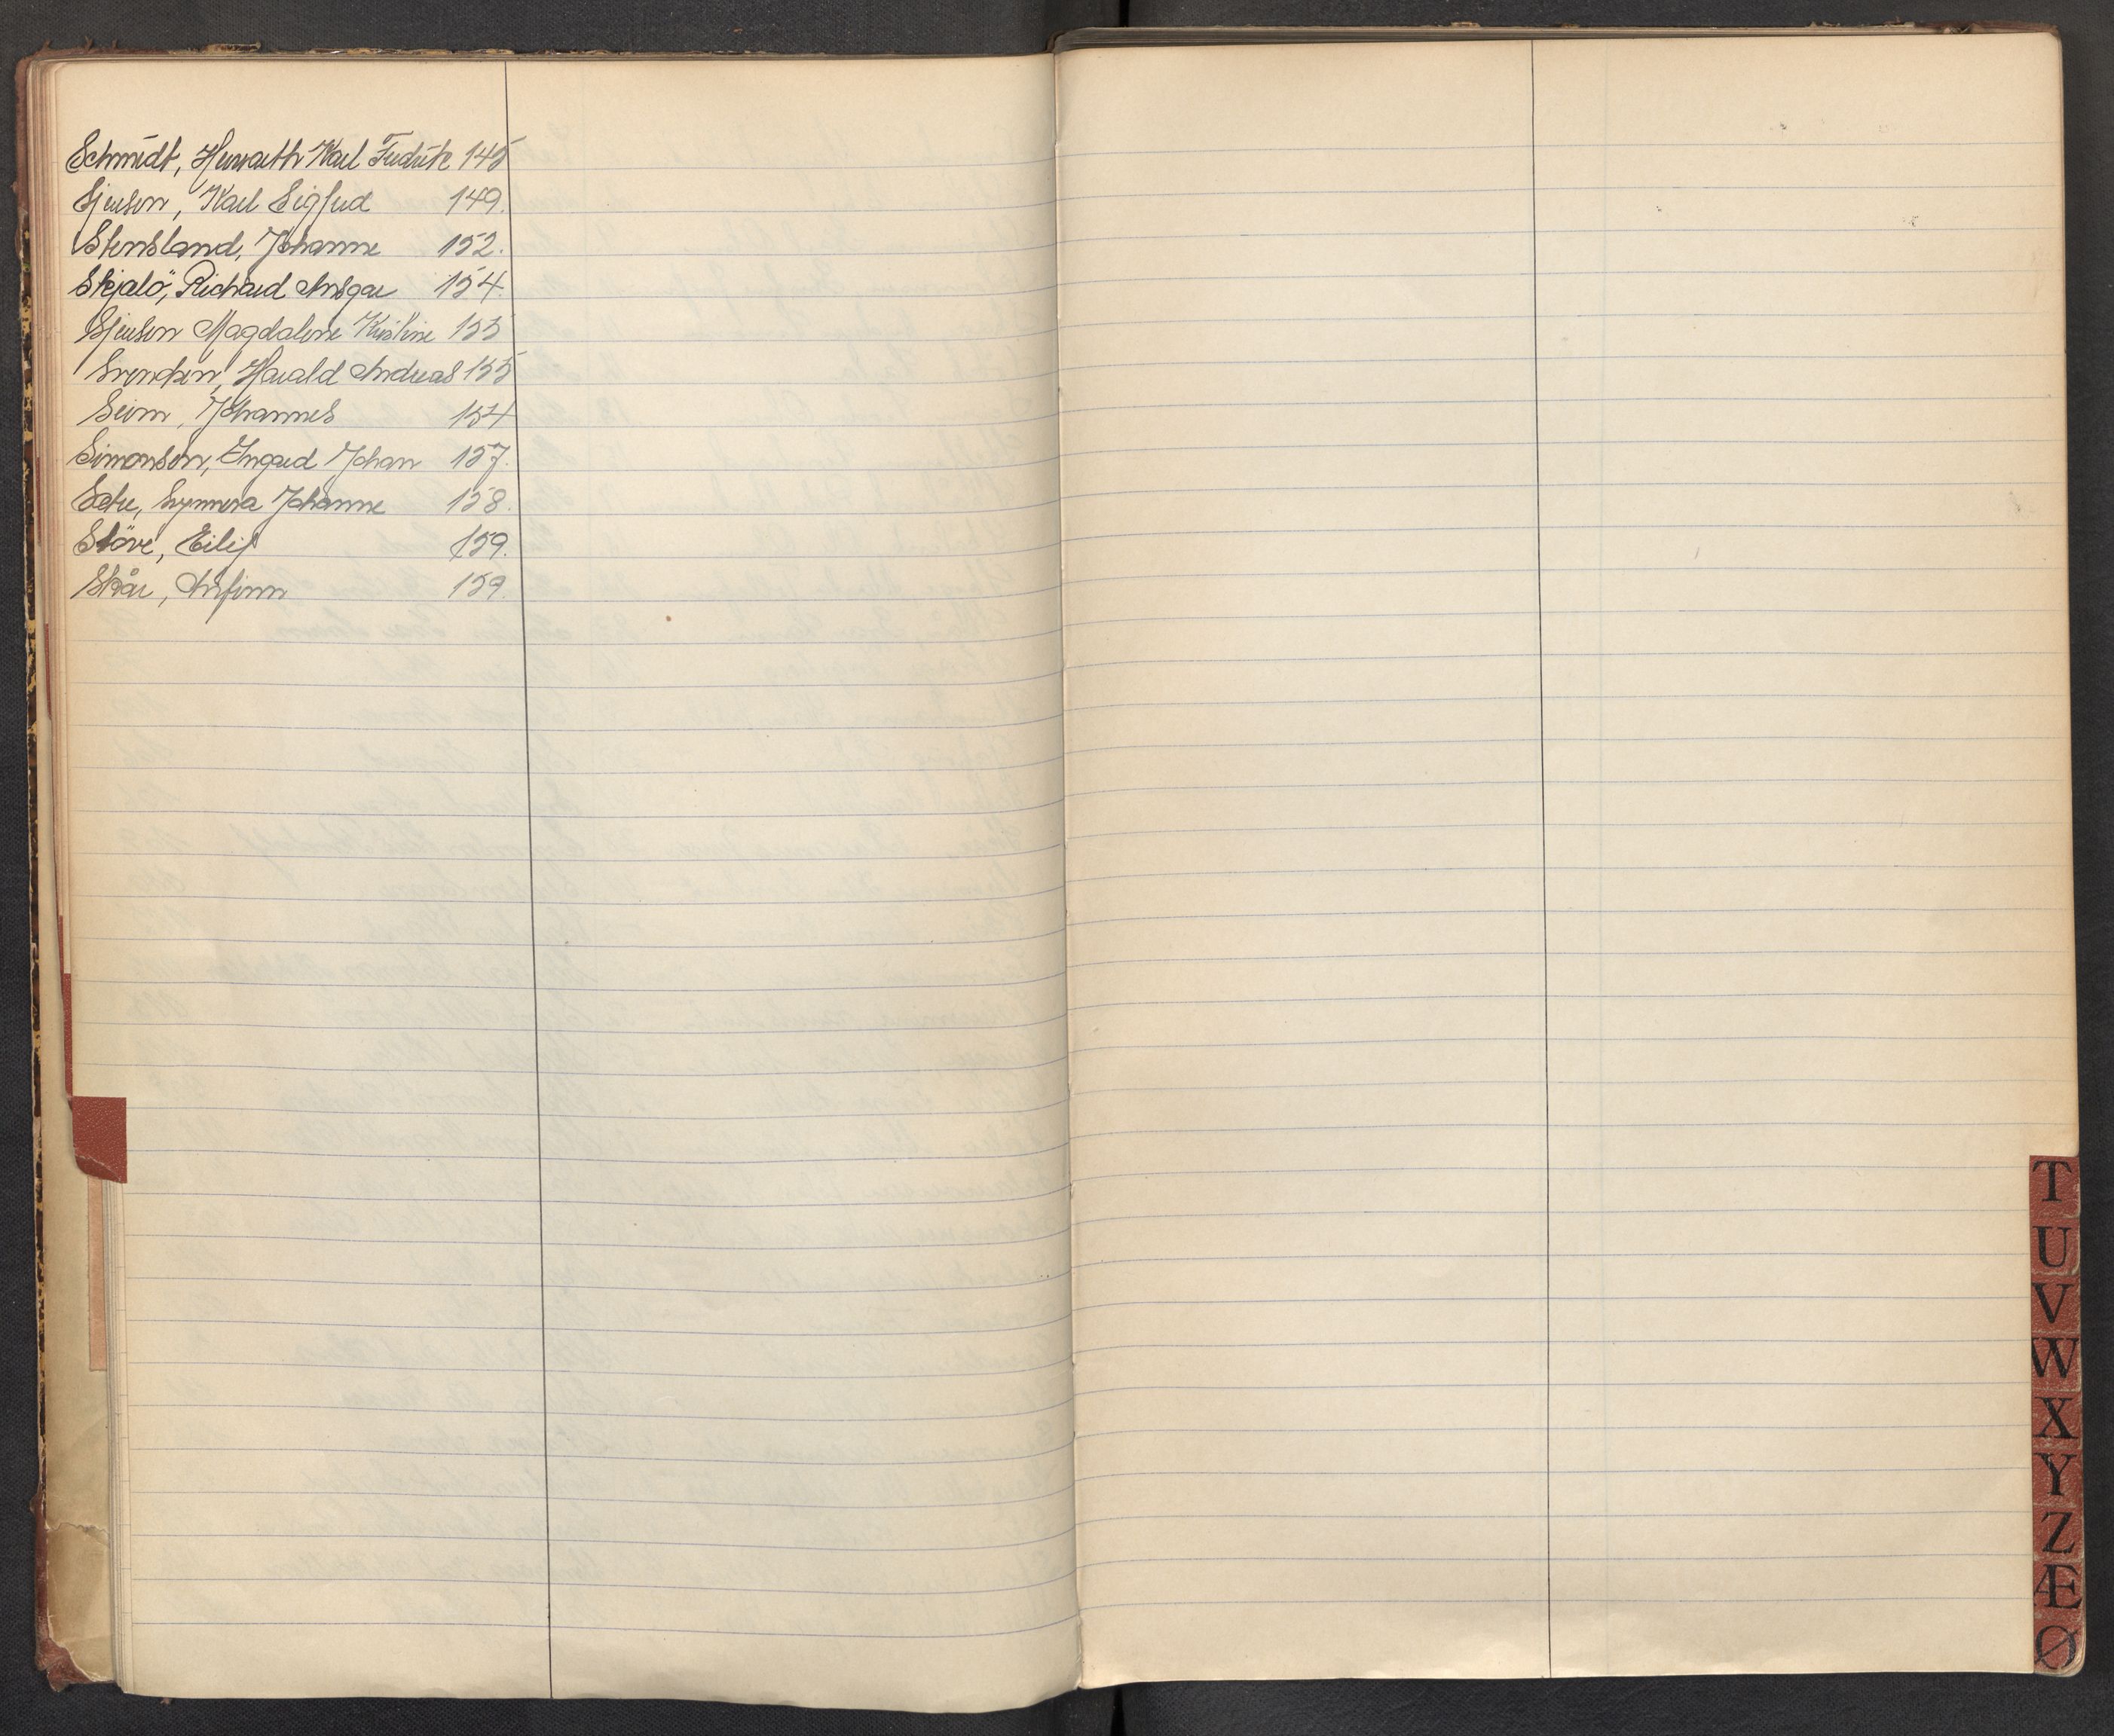 Schmidt, Herwarth Karl Fredrik 145
Sjursen, Karl Sigfred 149.
Stensland, Johanne 152.
Skjalö, Richard Ansgar 154.
Sjursen Magdalene Kristine 155
Svendsen, Harald Andreas 155
Seim, Johannes 154
Simonsen, Ingard Johan 157.
Sætre, Synnøva Johanne 158.
Støve, Eilif 159.
Skår, Arnfinn 159.
T
U
V
W
X
Y
Z
Æ
Ø